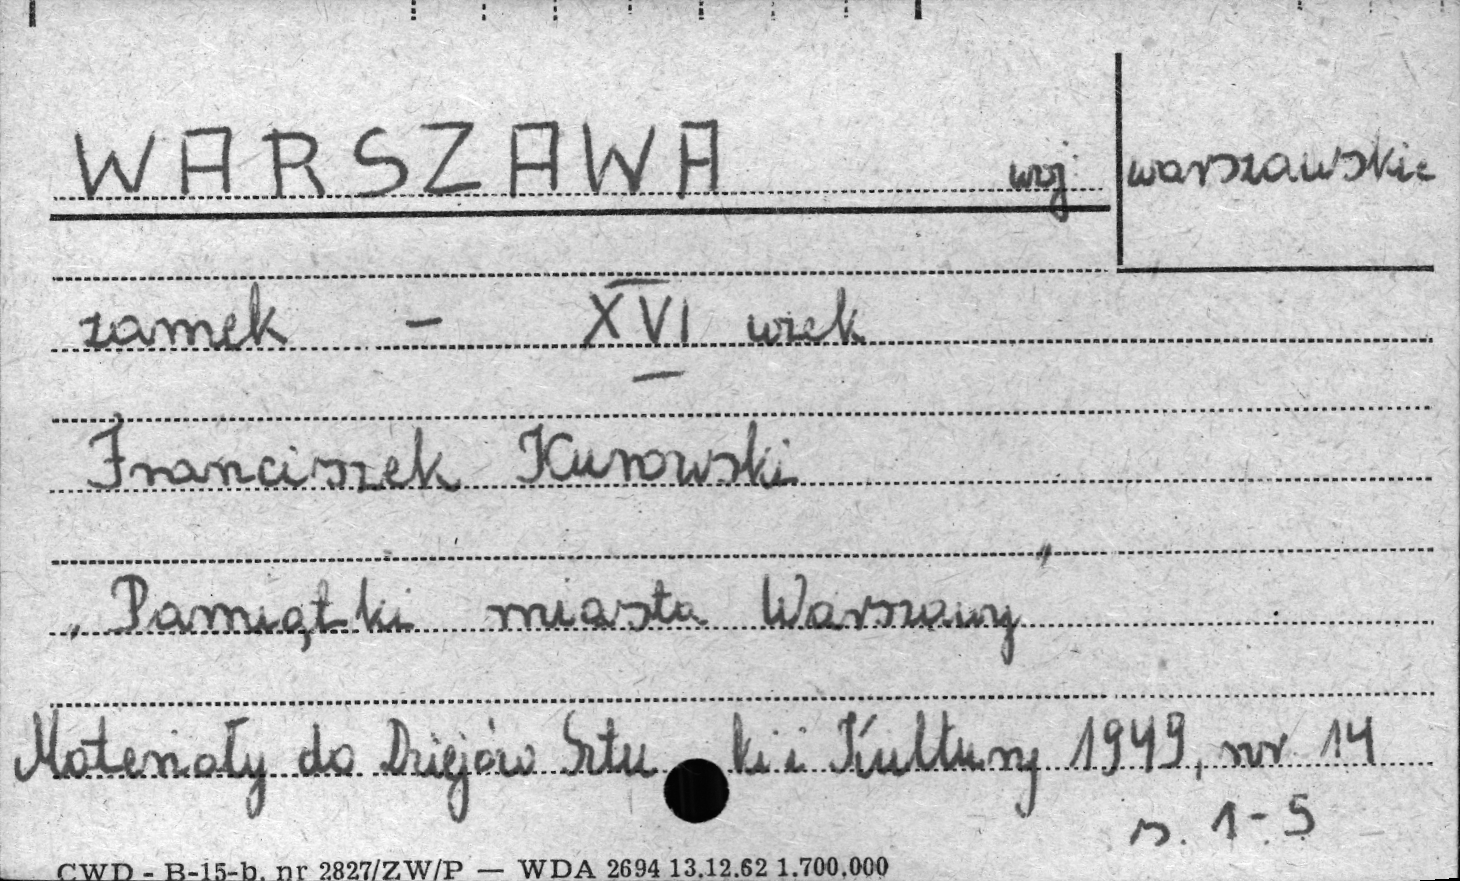 WARSZAWA woj. warszawskie
zamek - XVI wiek
Franciszek Kurowski
„Pamiątki miasta Warszawy"
Materiały do Dziejów Sztuki i Kultury 1949, nr 14
s. 1-5
CWD - B-15-b. nr 2827/ZW/P — WDA 2694 13.12.62 1.700.000